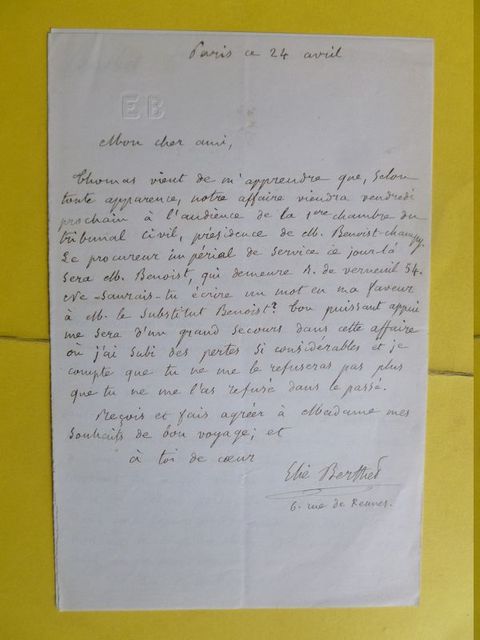 Paris ce 24 avril
EB
Mon cher ami,
Thomas vient de m'apprendre que, selon
toute apparence, notre affaire viendra vendredi
prochain à l'audience de la 1ere chambre du
tribunal civil, présidence de M. Benoist-Champy.
Le procureur impérial de service ce jour-là
sera M. Benoist, qui demeure r. de verneuil 54.
Ne saurais-tu écrire un mot en ma faveur
à M. le Substitut Benoist? Ton puissant appui
me sera d'un grand secours dans cette affaire
où j'ai subi des pertes si considérables et je
compte que tu ne me le refuseras pas plus
que tu ne me l'as refusé dans le passé.
Reçois et fais agréer à Madame mes
souhaits de bon voyage; et
à toi de cœur
Elie Berthet
6. rue de Rennes.